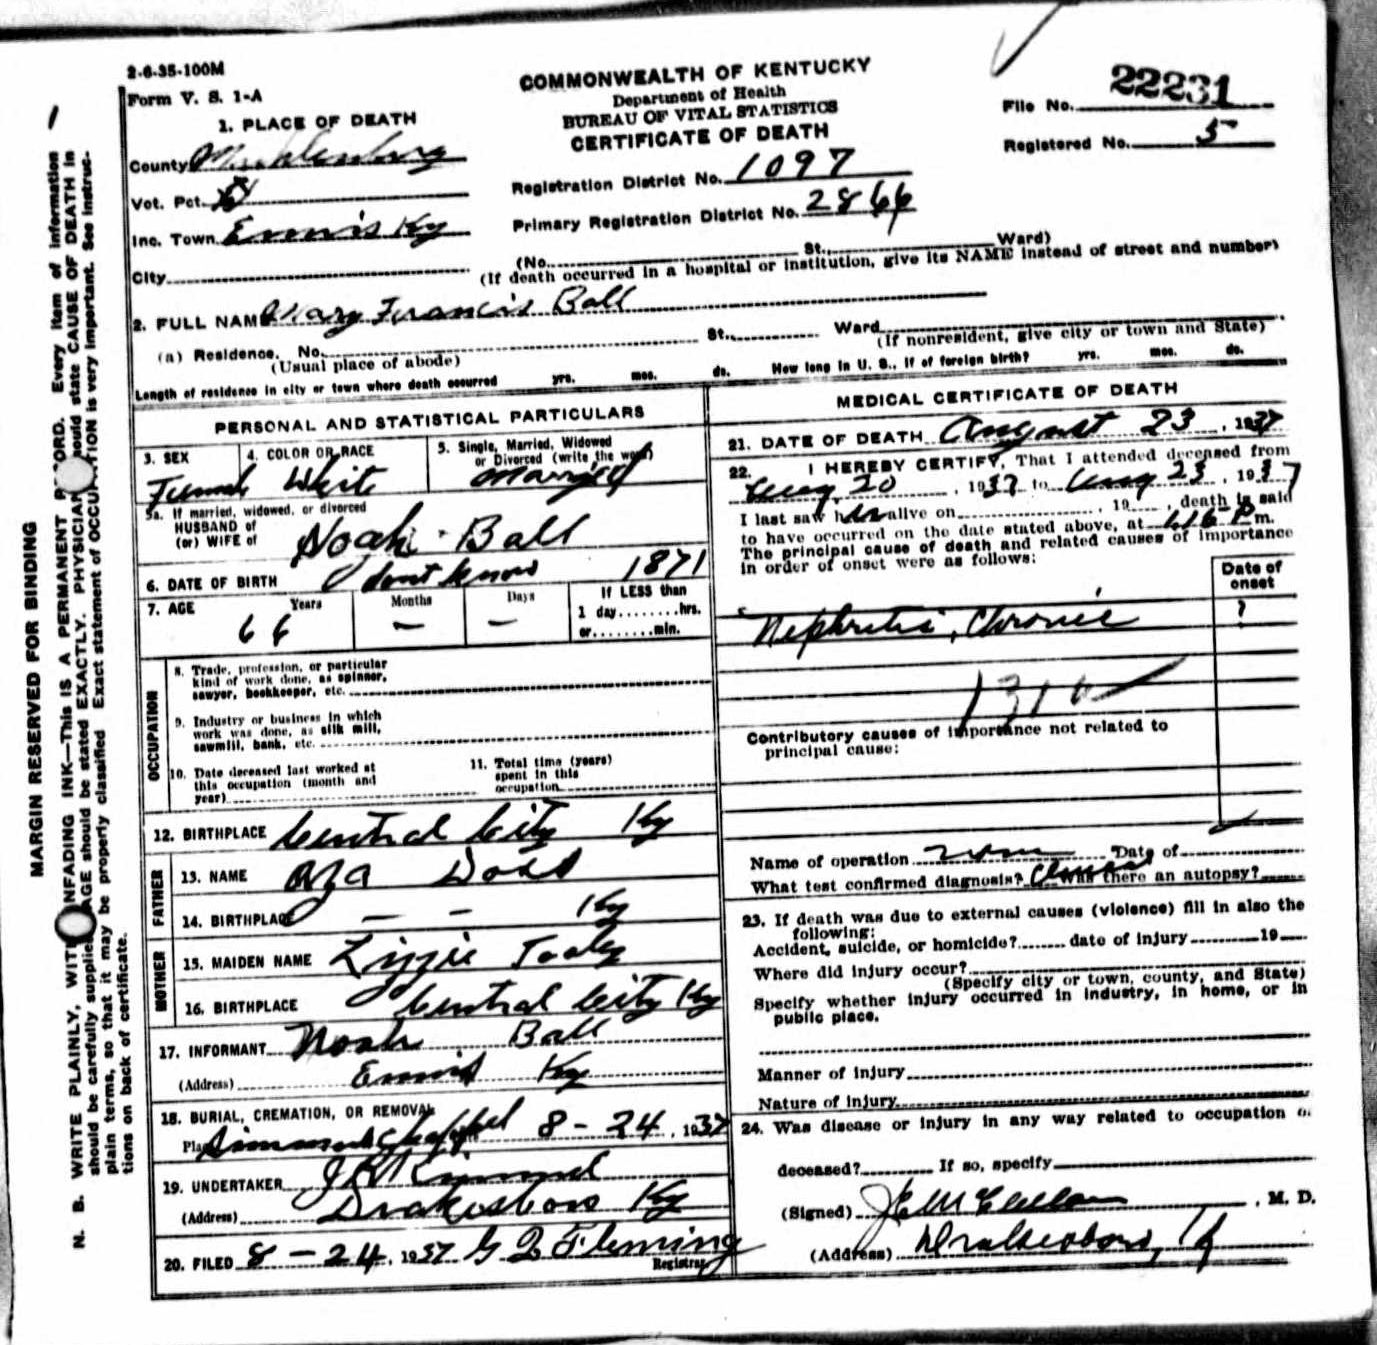 2-6-35-100M
Form V. S. 1-A
COMMONWEALTH OF KENTUCKY
Department of Health
BUREAU OF VITAL STATISTICS
CERTIFICATE OF DEATH
File No. 22231
Registered No. 5
1. PLACE OF DEATH
County Muhlenburg
Vot. Pct.
Inc. Town Ennis Ky
City
Registration District No. 1097
Primary Registration District No. 2866
(No. St., Ward)
(If death occurred in a hospital or institution, give its NAME instead of street and number)
2. FULL NAME Mary Francis Ball
(a) Residence. No. St., Ward
(Usual place of abode) (If nonresident, give city or town and State)
Length of residence in city or town where death occurred yrs. mos. ds. How long in U. S., if of foreign birth? yrs. mos. ds.
PERSONAL AND STATISTICAL PARTICULARS
3. SEX Female
4. COLOR OR RACE White
5. Single, Married, Widowed
or Divorced (write the word)
Married
5a. If married, widowed, or divorced
HUSBAND of
(or) WIFE of Noah Ball
6. DATE OF BIRTH dont know 1871
7. AGE Years Months Days If LESS than
66 — — 1 day........hrs.
or........min.
OCCUPATION
8. Trade, profession, or particular
kind of work done, as spinner,
sawyer, bookkeeper, etc.
9. Industry or business in which
work was done, as silk mill,
sawmill, bank, etc.
10. Date deceased last worked at
this occupation (month and
year)
11. Total time (years)
spent in this
occupation
12. BIRTHPLACE Central City Ky
FATHER
13. NAME Aza Doss
14. BIRTHPLACE — — Ky
MOTHER
15. MAIDEN NAME Lizzie Tooley
16. BIRTHPLACE Central City Ky
17. INFORMANT Noah Ball
(Address) Ennis Ky
18. BURIAL, CREMATION, OR REMOVAL
Place Simmons Chappel 8-24, 1937
19. UNDERTAKER J R Kimmel
(Address) Drakesboro Ky
20. FILED 8-24, 1937 G L Fleming
Registrar
MEDICAL CERTIFICATE OF DEATH
21. DATE OF DEATH August 23, 1937
22. I HEREBY CERTIFY, That I attended deceased from
Aug 20, 1937 to Aug 23, 1937
I last saw her alive on , 19 , death is said
to have occurred on the date stated above, at P m.
The principal cause of death and related causes of importance
in order of onset were as follows:
Date of
onset
Nephritis, Chronic ?
Contributory causes of importance not related to
principal cause:
Name of operation Date of
What test confirmed diagnosis? Clinical Was there an autopsy?
23. If death was due to external causes (violence) fill in also the
following:
Accident, suicide, or homicide? date of injury 19
Where did injury occur?
(Specify city or town, county, and State)
Specify whether injury occurred in industry, in home, or in
public place.
Manner of injury
Nature of injury
24. Was disease or injury in any way related to occupation o.
deceased? If so, specify
(Signed) , M. D.
(Address) Drakesboro, Ky
MARGIN RESERVED FOR BINDING
N. B. WRITE PLAINLY, WITH UNFADING INK—THIS IS A PERMANENT RECORD. Every item of information
should be carefully supplied. AGE should be stated EXACTLY. PHYSICIANS should state CAUSE OF DEATH in
plain terms, so that it may be properly classified. Exact statement of OCCUPATION is very important. See instruc-
tions on back of certificate.